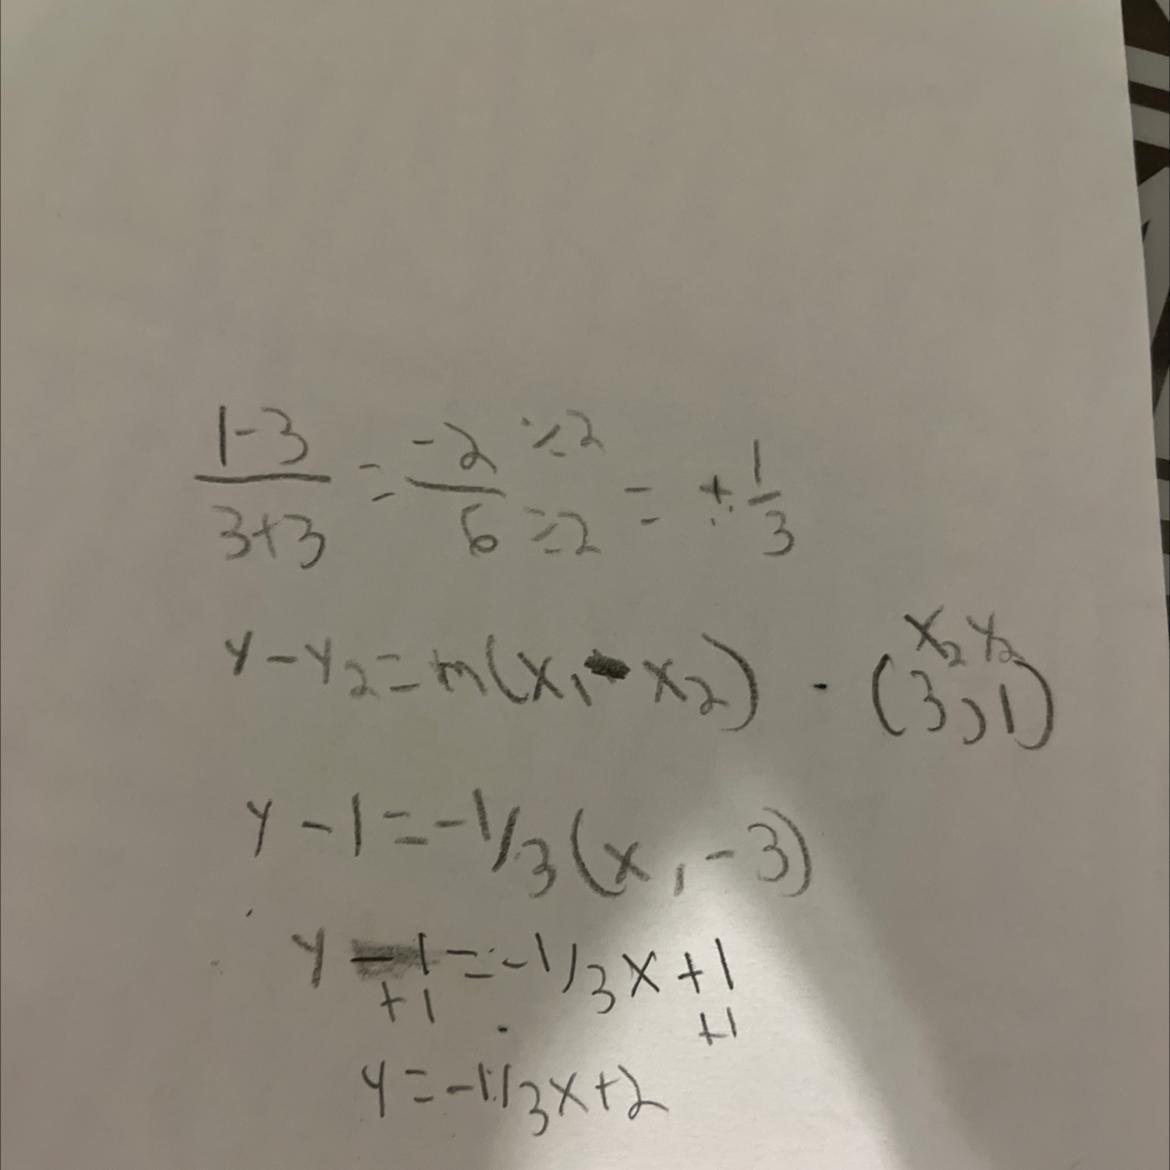 1-3 / 3+3 = -2 ÷2 / 6 ÷2 = ÷ 1/3
y - y₂ = m(x₁ - x₂) · (3,1) x₂ y₂
y - 1 = -1/3 (x₁ - 3)
y - 1 = -1/3 x + 1
+1 +1
y = -1/3 x + 2